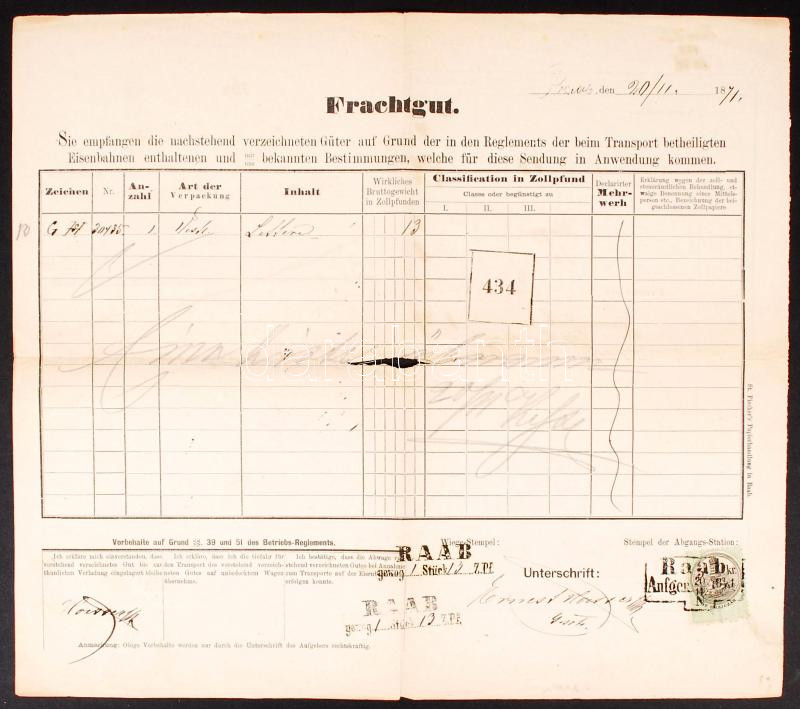 den 20/11. 1871.
Frachtgut.
Sie empfangen die nachstehend verzeichneten Güter auf Grund der in den Reglements der beim Transport betheiligten
Eisenbahnen enthaltenen und mir uns bekannten Bestimmungen, welche für diese Sendung in Anwendung kommen.
Zeichen Nr. An-zahl Art der Verpackung Inhalt Wirkliches Bruttogewicht in Zollpfunden Classification in Zollpfund Declarirter Mehr-werth
Classe oder begünstigt zu
I. II. III.
Erklärung wegen der zoll- und
steueramtlichen Behandlung, et-
waige Benennung einer Mittels-
person etc., Bezeichnung der bei-
geschlossenen Zollpapiere
10 1 13
434
20/11
St. Fischer's Papierhandlung in Raab.
Vorbehalte auf Grund §§. 39 und 51 des Betriebs-Reglements.
Wiege-Stempel:
Stempel der Abgangs-Station:
Ich erkläre mich einverstanden, dass
vorstehend verzeichnetes Gut bis zur
thunlichen Verladung eingelagert bleibe
Ich erkläre, dass ich die Gefahr für
den Transport des vorstehend verzeich-
neten Gutes auf unbedecktem Wagen
übernehme.
Ich bestätige, dass die Abwage
vorstehend verzeichneten Gutes bei Annahme
zum Transporte auf der
erfolgen konnte.
RAAB
gewog 1 Stück 13 Z.Pf.
Unterschrift:
Raab
Aufge
RAAB
gewog 1 Stück 13 Z.Pf.
Ernest
Anmerkung: Obige Vorbehalte werden nur durch die Unterschrift des Aufgebers rechtskräftig.
darabanth